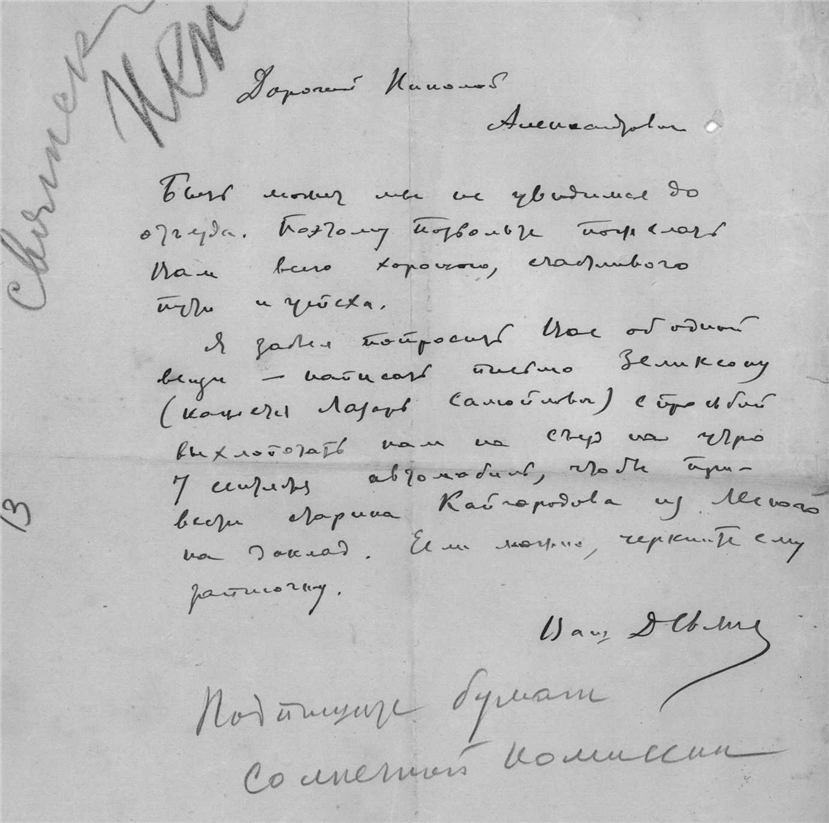 Святск
Дорогой Николай
Александрович
Быть может мы не увидимся до
отъезда. Поэтому позвольте пожелать
Вам всего хорошего, счастливого
пути и успеха.
Я забыл попросить Вас об одной
вещи — написать письмо Зеликсону
(кажется Лазарь Самойлович) с просьбой
выхлопотать нам на съезд на утро
7 сентября автомобиль, чтобы при-
везти старика Кайгородова из Лесного
на доклад. Если можно, черкните ему
записочку.
Ваш Д Святск
Подпишите бумаги
солнечной комиссии
13